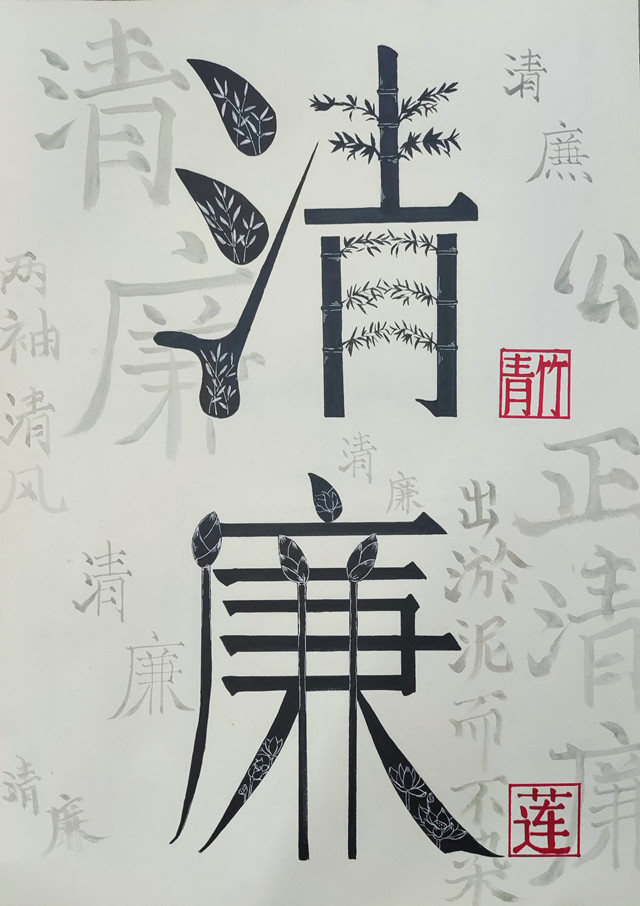 清廉
清廉
两袖清风
清廉
公正清廉
青竹
清廉
清廉
清廉
出淤泥而不染
莲